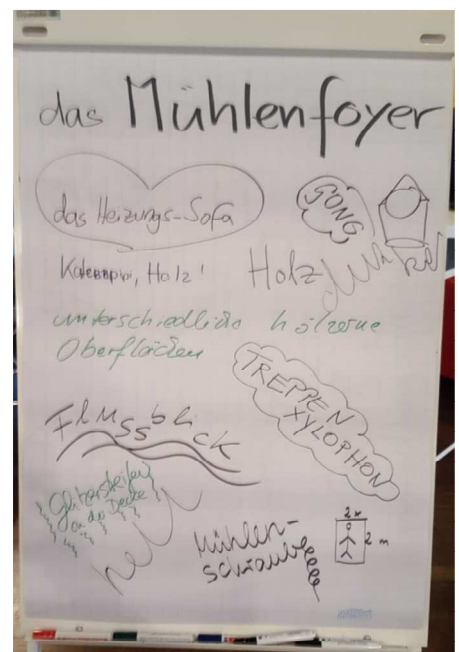 das Mühlenfoyer
das Heizungs-Sofa
GONG
Holz'
Holz
dunkel
unterschiedliche hölzerne
Oberflächen
TREPPEN
XYLOPHON
Flussblick
Glitzersteifen
an der Decke
hell
Mühlen-
schraube
2x
2 m